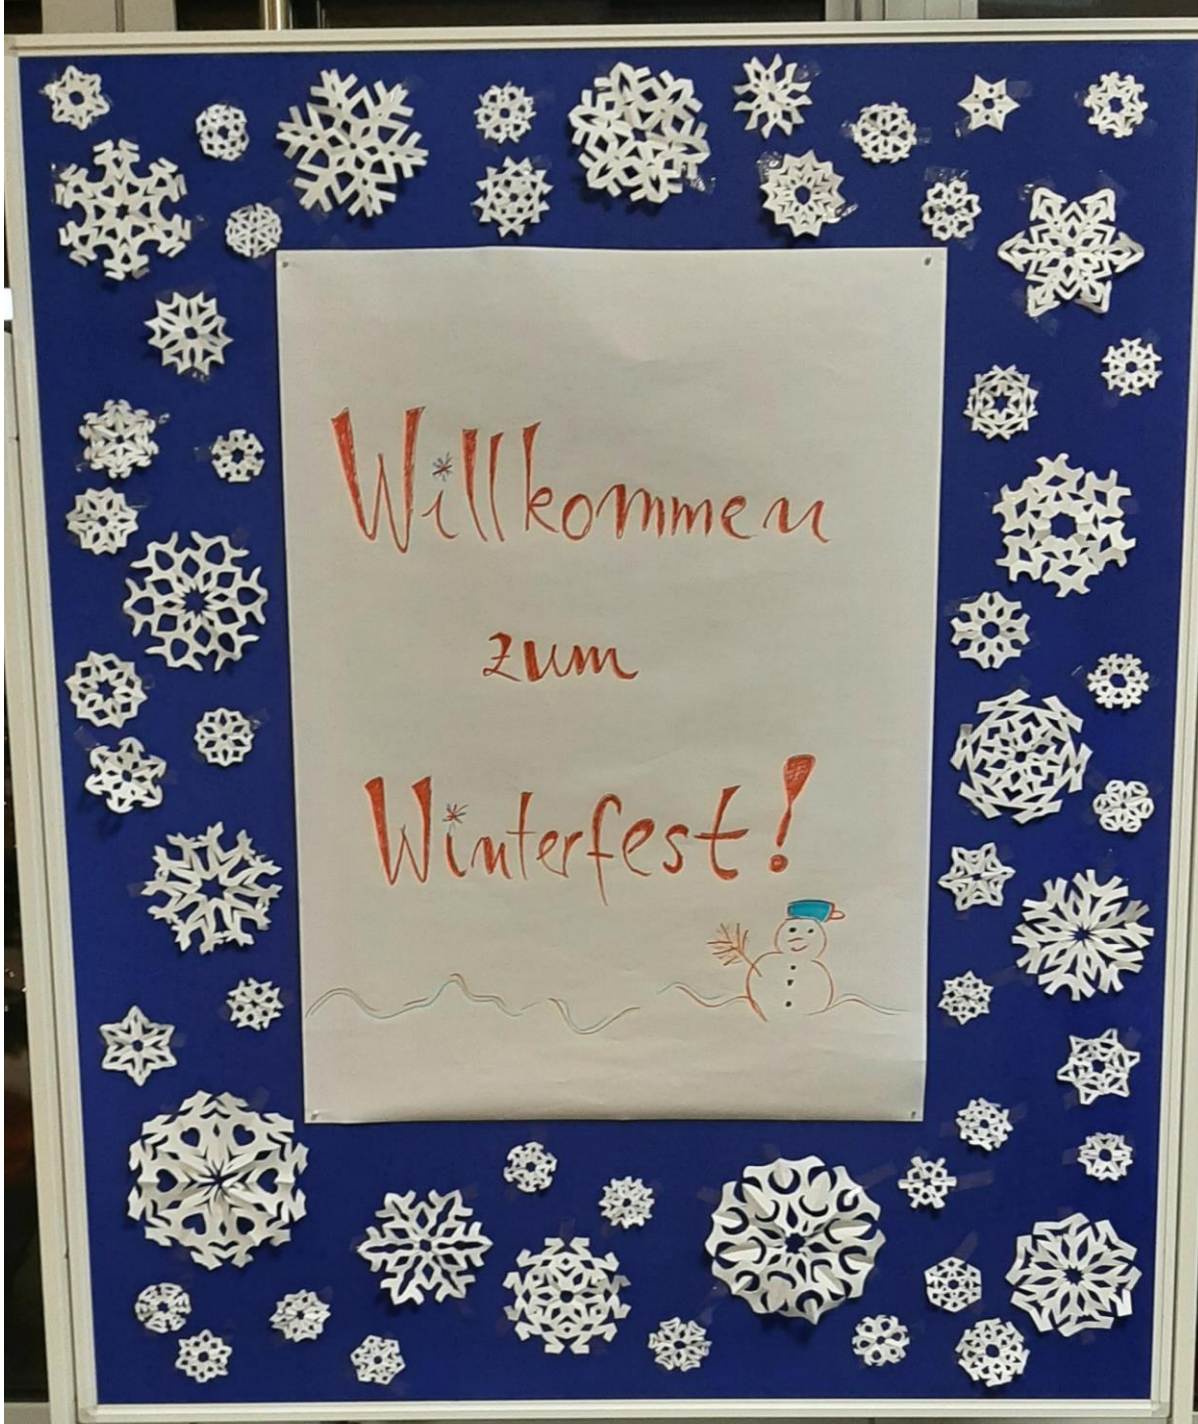 Willkommen
zum
Winterfest!